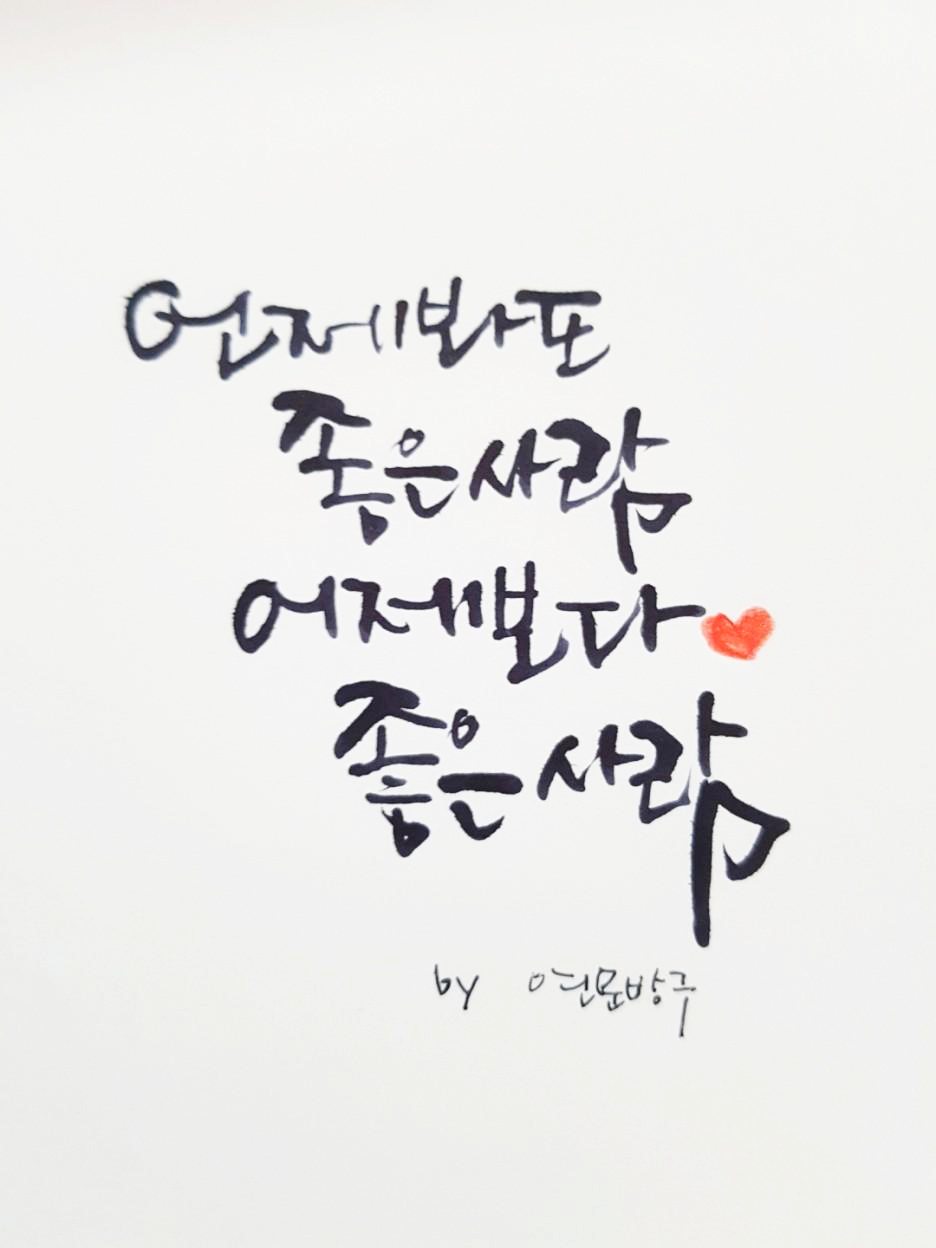 언제봐도
좋은사람
어제보다
좋은사람
by 연문방구